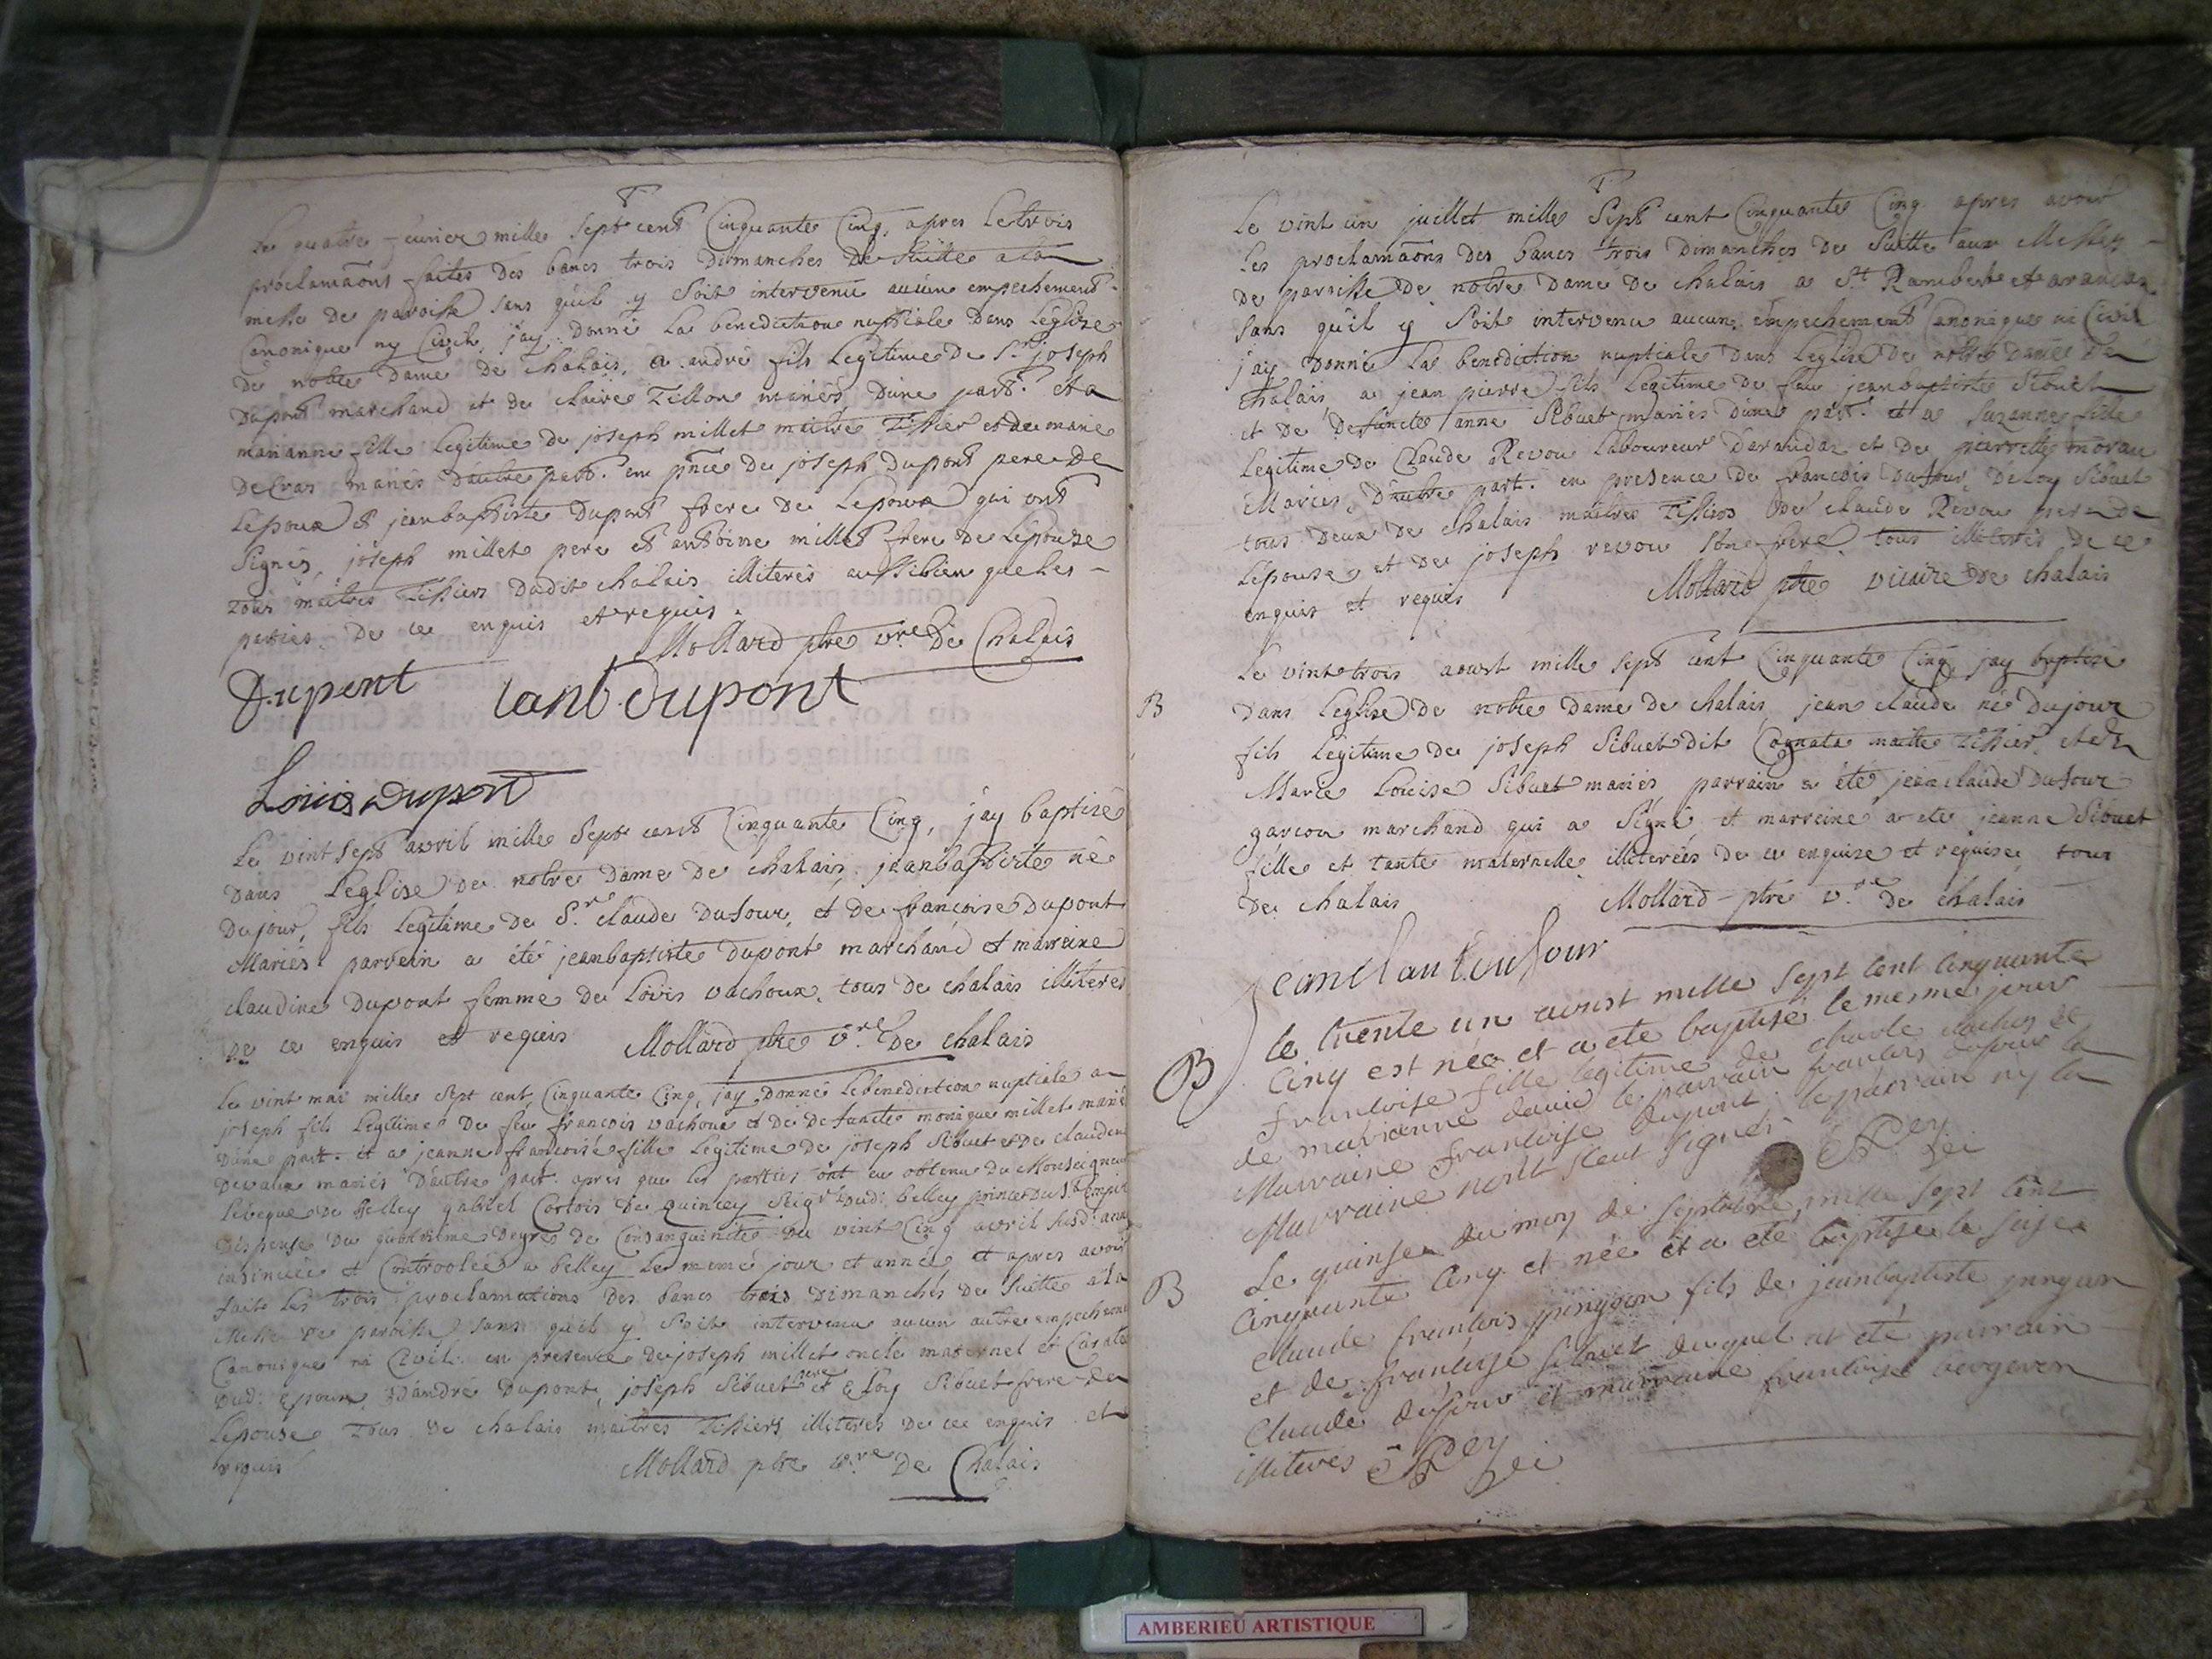 Le quatre fevrier mille sept cent Cinquante Cinq, apres les trois
proclamaõns faites des bancs trois dimanches de suitte a la
messe de paroisse sans qu'il y soit intervenu aucun empechement
Canonique ny Civil, j'ay donné la benediction nuptiale dans l'eglise
de notre dame de Chalais, a andré fils legitime de Sr joseph
Dupont marchand et de claire Tillon mariés d'une part. et a
marianne fille legitime de joseph millet maitre Tissier et de marie
Decras mariés d'autre part. en pñce de joseph Dupont pere de
L'epoux et jeanbaptiste Dupont frere de Lepoux qui ont
Signés, joseph millet pere et antoine millet frere de L'epouze
tous maitres Tissiers dudit Chalais illiterés aussibien que les
parties de ce enquis et requis.
Mollard ptre vre De Chalais
Dupont Janb dupont
Louis Dupont
Le vint sept avril mille sept cent Cinquante Cinq, j'ay baptisé
dans Leglise de notre dame de chalais, jeanbaptiste né
Dujour, fils legitime de Sr claude Dufour, et de francoise Dupont
Mariés parrein a été jeanbaptiste Dupont marchand et marreine
claudine Dupont femme de Lovis vachoux, tous de chalais illiteres
de ce enquis et requis Mollard ptre v.re De chalais
Le vint mai mille sept cent Cinquante Cinq, jay donné Lebenediction nuptiale a
joseph fils Legitime De feu francois vachoux et de Defuncte monique millet marié
D'une part. et a jeanne francoise fille legitime de joseph Sibuet et de claudine
Devaux mariés D'autre part. apres que les parties ont eu obtenu de Monseigneur
L'eveque de Belley gabriel Cortois De quincey Seigr Dud: belley prince du St Empire
Dispense du quatrieme Degré de Consanguinité du vint Cinq avril susd: année
insinuée et Controolée a belley le meme jour et année et apres avoir
fait les trois proclamations des bancs trois Dimanches de suitte a la
Messe de paroisse sans qu'il y soit intervenu aucun autre empechement
Canonique ni Civil. en presence de joseph millet oncle maternel et
Dud: Epoux, D'andré Dupont, joseph Sibuet pere et Eloy Sibuet frere de
Lepouse Tous de chalais maitres Tissiers illiteres de ce enquis et
requis Mollard ptre v.re De Chalais
Le vint un juillet mille Sept cent Cinquante Cinq apres avoir
Les proclamaõns des bancs trois Dimanches de Suitte aux Messes
De paroisse De notre Dame De chalais a St Rambert et arandas
Sans qu'il y Soit intervenu aucun empechement Canonique ni Civil
j'ay Donné La benediction nuptiale dans Leglise De notre Dame De
Chalais a jean pierre fils Legitime de feu jeanbaptiste Sibuet
et de Defuncte anne Sibuet mariés D'une part. et a Suzanne fille
Legitime de Claude Revou Laboureur d'arandaz et de pierrette moran
Mariés, D'autre part. en presence de francois Dufour, Deloy Sibuet
tous deux de chalais maitres Tissiers de claude Revou pere de
L'épouse et de joseph revou Son frere, tous illiterés de ce
enquis et requis Mollard ptre vicaire de chalais
Le vint trois aoust mille sept cent Cinquante Cinq, jay baptisé
B dans Leglise de notre Dame de chalais, jean claude né Dujour
fils legitime de joseph Sibuet dit Cognata maitre Tissier, et de
Marie Louise Sibuet mariés parrain a été jean claude Dufour
garcon marchand qui a Signé, et marreine a ete jeanne Sibuet
fille et tante maternelle illiterées de ce enquise et requise tous
De chalais Mollard ptre v.re de chalais
Jeanclaudeufour
B le trente un aoust mille sept cent Cinquante
Cinq est née et a ete baptisé le mesme jour
francoise fille legitime de claude
de marianne le parrain francois dufour la
Marraine francoise dupont. le parrain ny la
Marraine nont sceut signer Rey
B Le quinse du moy de septebre mille sept cent
Cinquante Cinq et née et a eté baptisé le seise
Claude francois pingeon fils de jeanbaptiste pingeon
et de francoise sibuet duquel at été parrain
Claude dufour et marraine francoise bergeron
illiterés Rey
AMBERIEU ARTISTIQUE